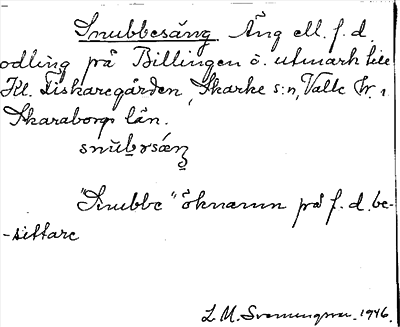 Snubbesäng. Äng ell. f. d.
odling på Billingen ö. utmark till
Kl. Fiskaregården, Skarke s:n, Valle hr.
Skaraborgs län.
"Snubbe" öknamn på f. d. be-
-sittare
L. M. Svenungsson. 1946.